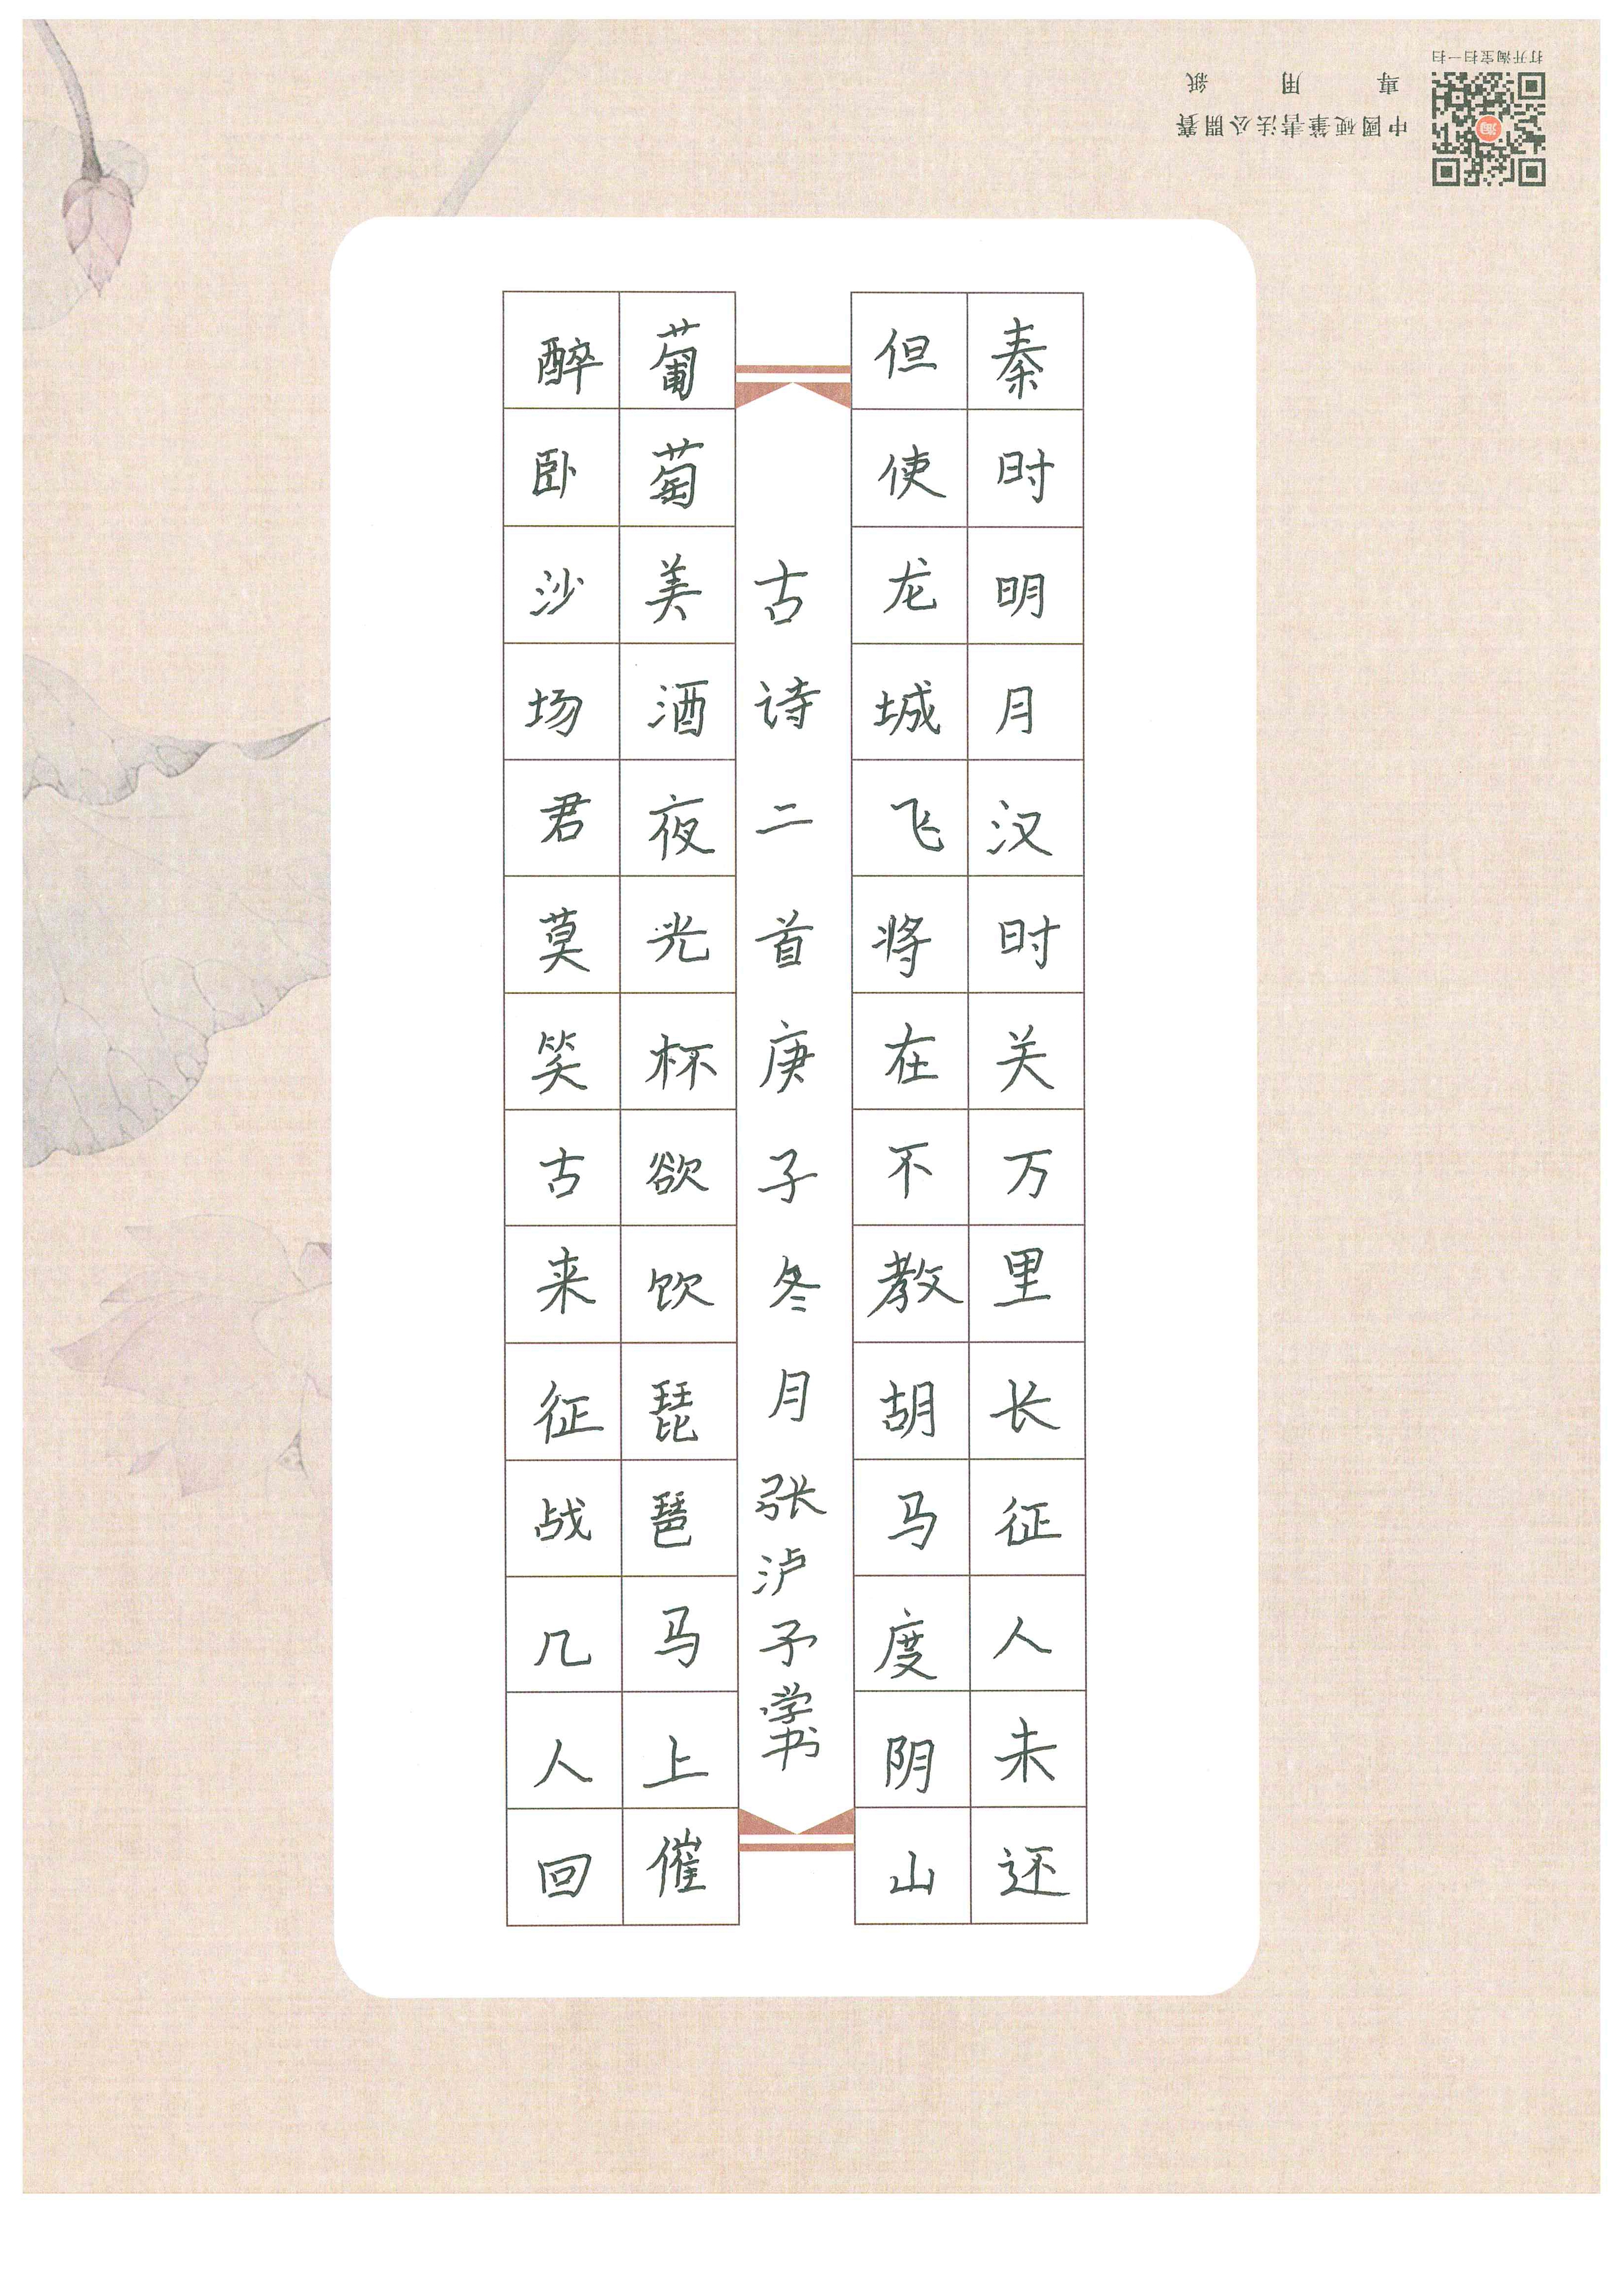 秦时明月汉时关万里长征人未还
但使龙城飞将在不教胡马度阴山
古诗二首庚子冬月张泸予学书
葡萄美酒夜光杯欲饮琵琶马上催
醉卧沙场君莫笑古来征战几人回
中國硬筆書法公開賽
專用紙
打开淘宝扫一扫
淘